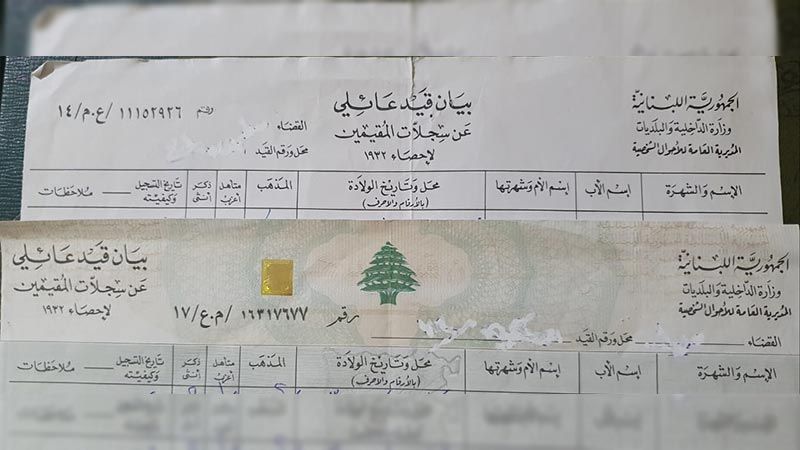 الجمهوريّة اللبنانيّة
وزارة الداخلية والبلديات
المديرية العامة للأحوال الشخصية
بيان قيد عائلي
عن سجلات المقيمين
لإحصاء ١٩٣٢
رقم ١١١٥٢٩٢٦ /ع.م/١٤
القضاء
محل ورقم القيد
الإسم والشهرة
إسم الأب
إسم الأم وشهرتها
محل وتاريخ الولادة
(بالأرقام والأحرف)
المذهب
متأهل أعزب
ذكر أنثى
تاريخ التسجيل وكيفيته
ملاحظات
الجمهوريّة اللبنانيّة
وزارة الداخلية والبلديات
المديرية العامة للأحوال الشخصية
القضاء
محل ورقم القيد
رقم ١٦٣١٧٦٧٧ /م.ع/١٧
بيان قيد عائلي
عن سجلات المقيمين
لإحصاء ١٩٣٢
الإسم والشهرة
إسم الأب
إسم الأم وشهرتها
محل وتاريخ الولادة
(بالأرقام والأحرف)
المذهب
متأهل أعزب
ذكر أنثى
تاريخ التسجيل وكيفيته
ملاحظات